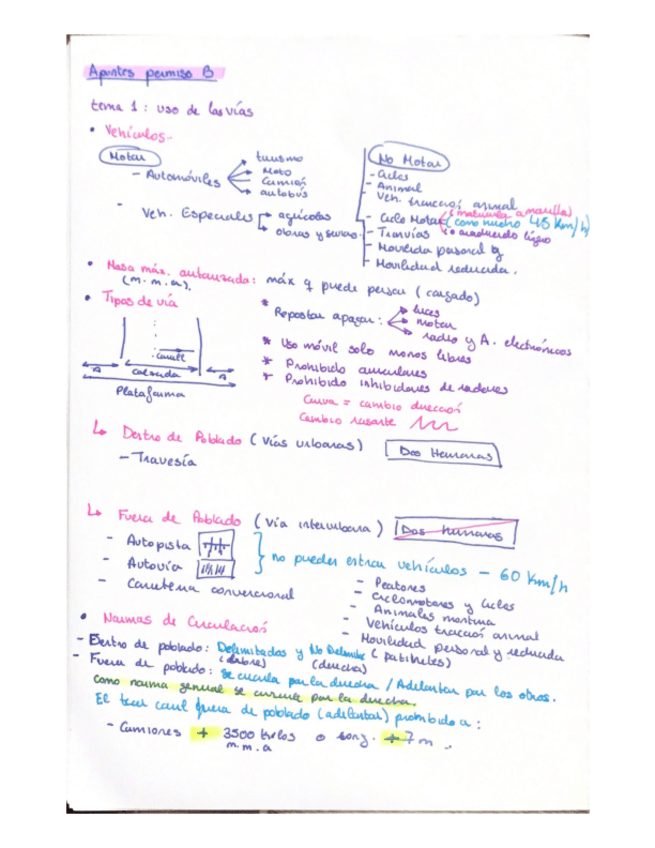 Apuntes permiso B
tema 1: uso de las vías
• Vehículos-
Motor
- Automóviles
turismo
Moto
Camión
autobús
- Veh. Especiales
agrícolas
obras y servic.
No Motor
- Ciclos
- Animal
- Veh. tracción animal
- Ciclo Motor (matrícula amarilla) (como mucho 45 Km/h)
- Tranvías o cuadriciclo ligero
- Movilida personal
- Movilidad reducida.
• Masa máx. autorizada: máx q puede pesar (cargado)
(m.m.a).
• Tipos de vía
carril
A calzada A
Plataforma
* Repostar apagar:
luces
motor
radio y A. electrónicos
* Uso móvil solo manos libres
* Prohibido auriculares
* Prohibido inhibidores de radares
Curva = cambio dirección
Cambio rasante
↳ Dentro de Poblado (Vías urbanas) Dos Hermanas
- Travesía
↳ Fuera de Poblado (Vía interurbana) Dos hermanas
- Autopista
- Autovía
- Carretera convencional
no pueden entrar vehículos - 60 Km/h
- Peatones
- Ciclomotores y Ciclos
- Animales
- Vehículos tracció animal
- Movilidad personal y reducida
(patinetes)
• Normas de Circulación
- Dentro de poblado: Delimitados y No Delimita
(derecha)
- Fuera de poblado: se circula por la derecha / Adelantar por los otros.
Como norma general se circula por la derecha.
El tercer carril fuera de poblado (adelantar) prohibido a:
- Camiones + 3500 kilos o long. + 7 m.
m.m.a